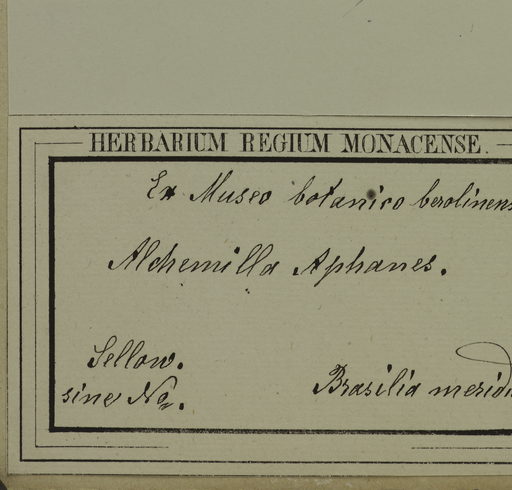 HERBARIUM REGIUM MONACENSE.
Ex Museo botanico berolinens
Alchemilla Aphanes.
Sellow.
sine No. Brasilia meridi